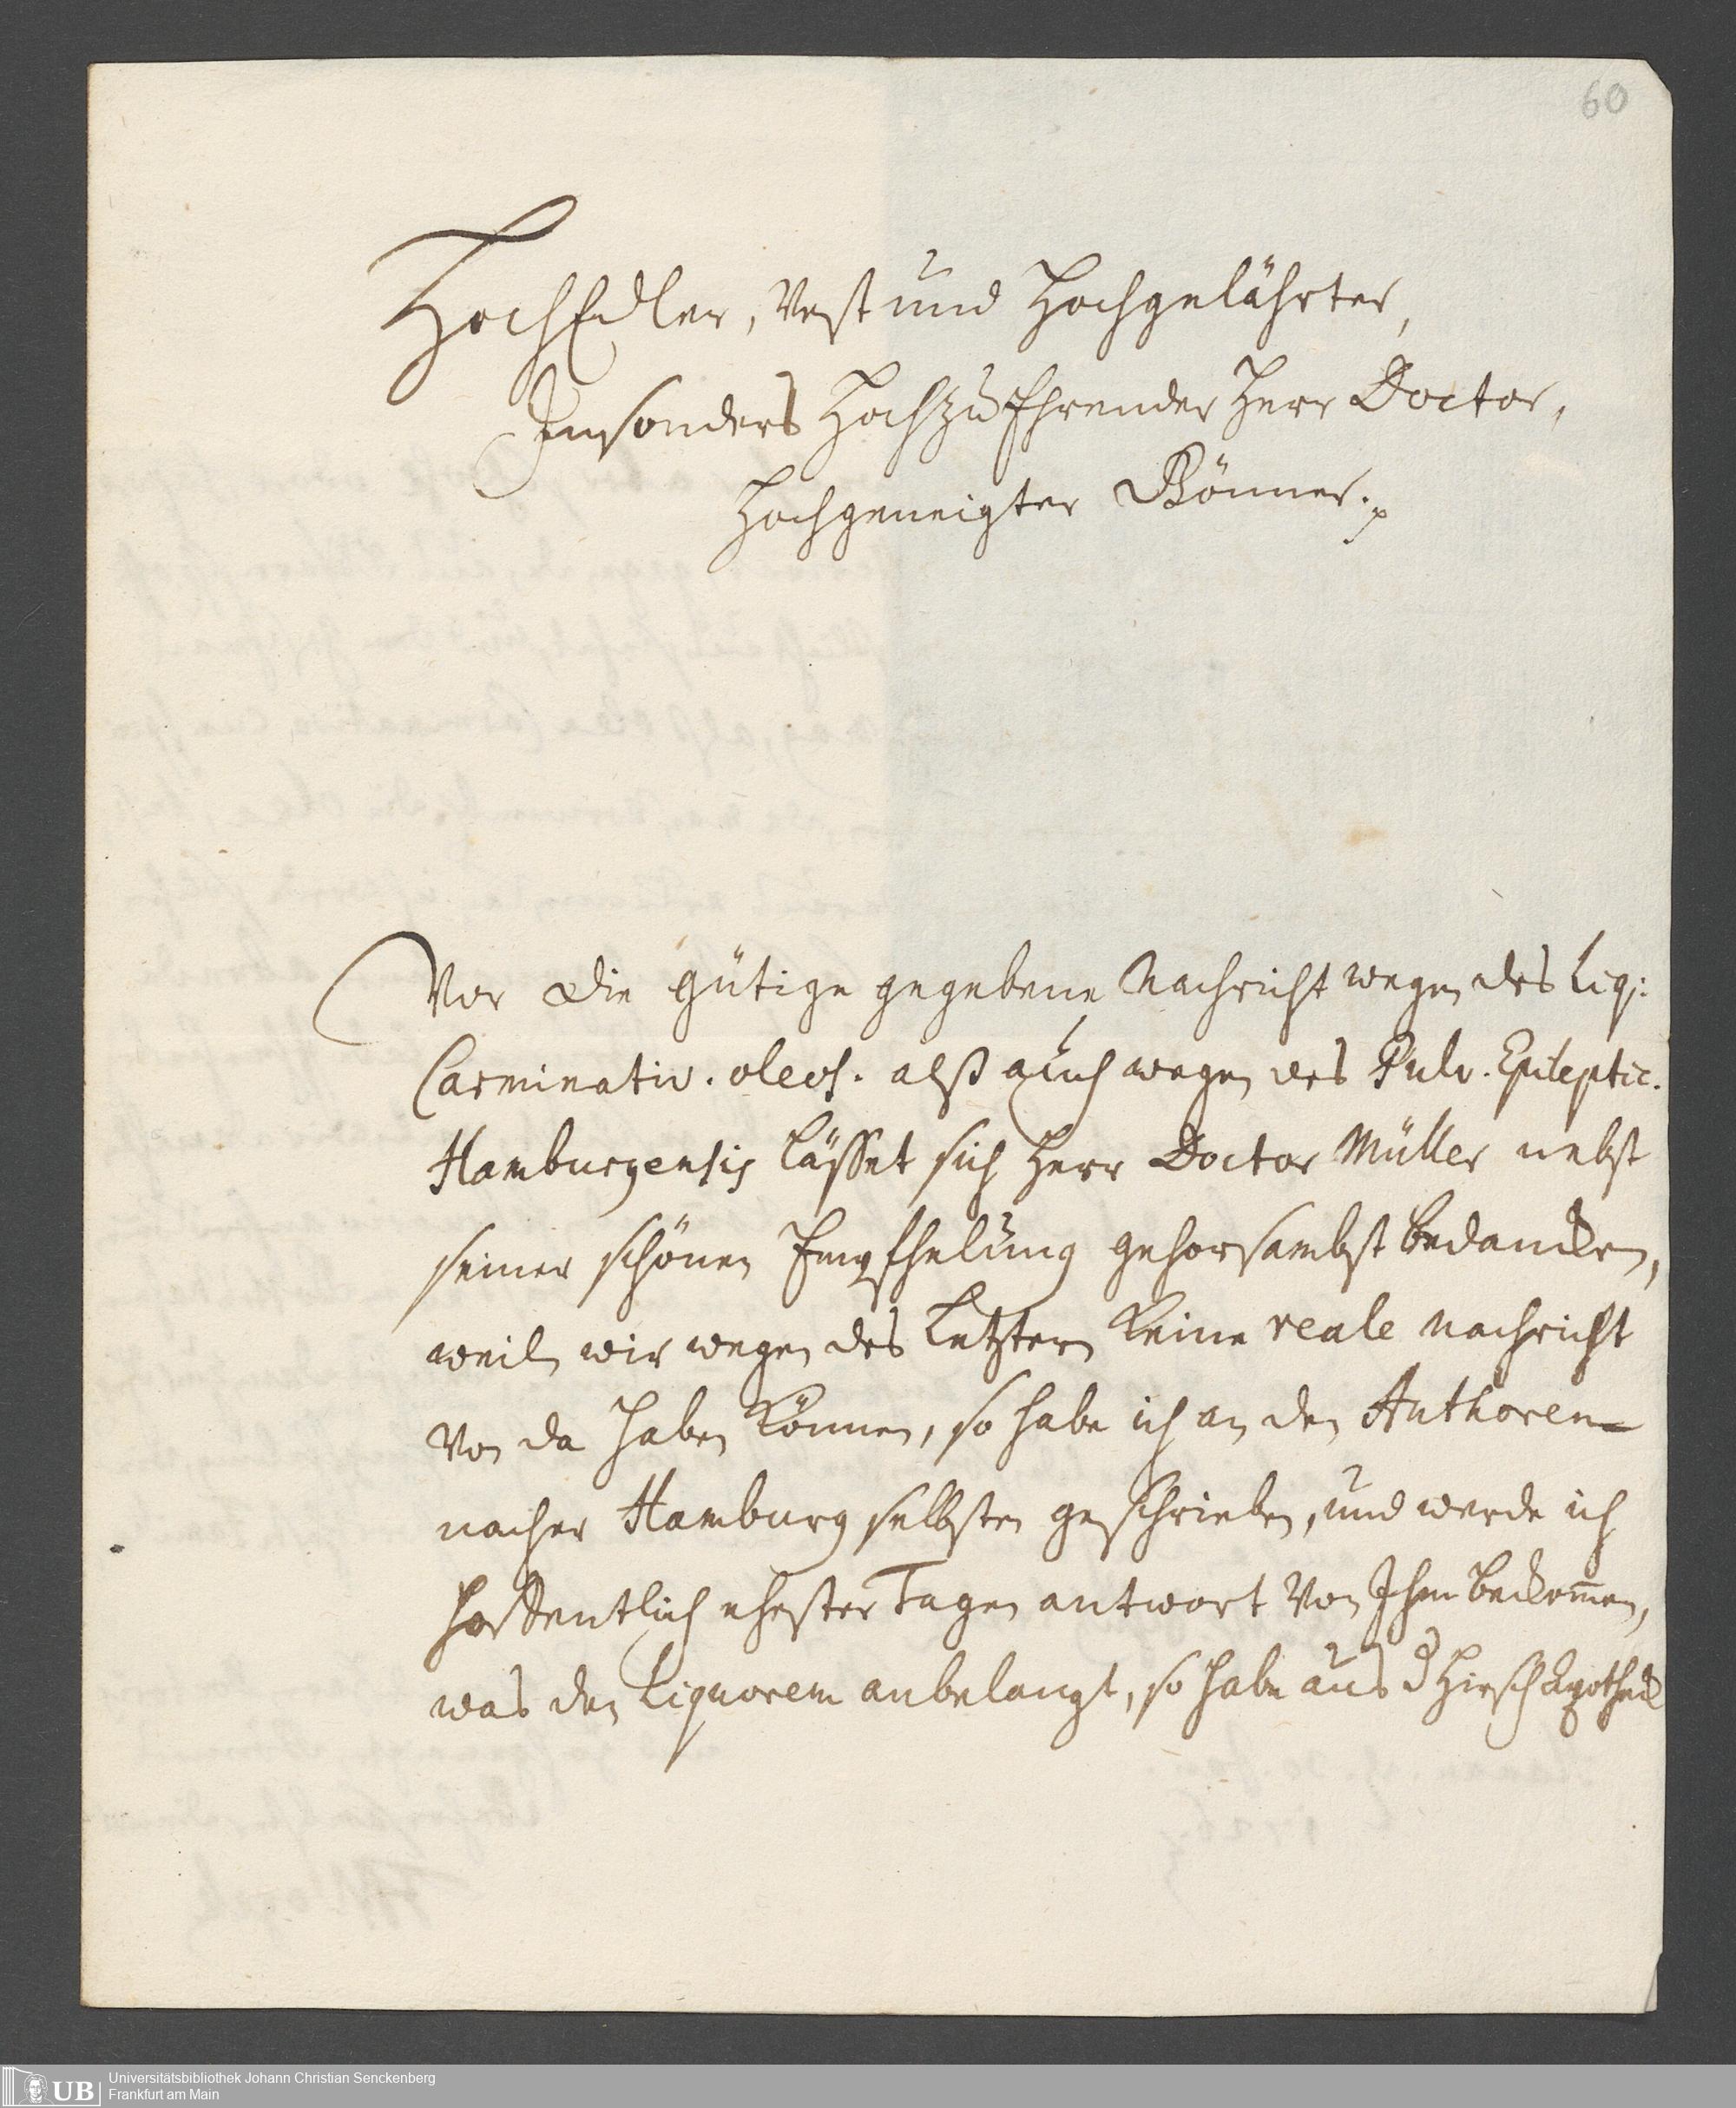 60
HochEdler, Vest und Hochgelährter,
Insonders HochzuEhrender Herr Doctor,
Hochgeneigter Gönner.
Vor die gütige gegebene Nachricht wegen des Liq:
Carminativ. oleos. alß auch wegen des Pulv. Epileptic.
Hamburgensis lässet sich Herr Doctor Müller nebst
seiner schönen Empfhelung gehorsambst bedancken,
weiln wir wegen des Letztern keine reale Nachricht
von da haben können, so habe ich an den Authoren
nacher Hamburg selbsten geschrieben, und werde ich
hoffentlich ehester Tagen antwort von Ihm bekom̄en,
was den Liquorem anbelangt, so habe aus d Hirsch Apotheck
UB
Universitätsbibliothek Johann Christian Senckenberg
Frankfurt am Main